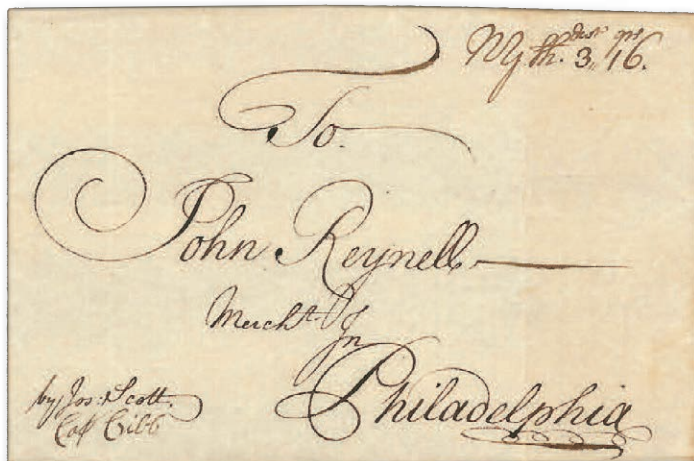 NYfh. 3 dwt 16 grs
To.
John Reynell
Mercht. In
Philadelphia
by Jos: Scott.
Cap Gibb